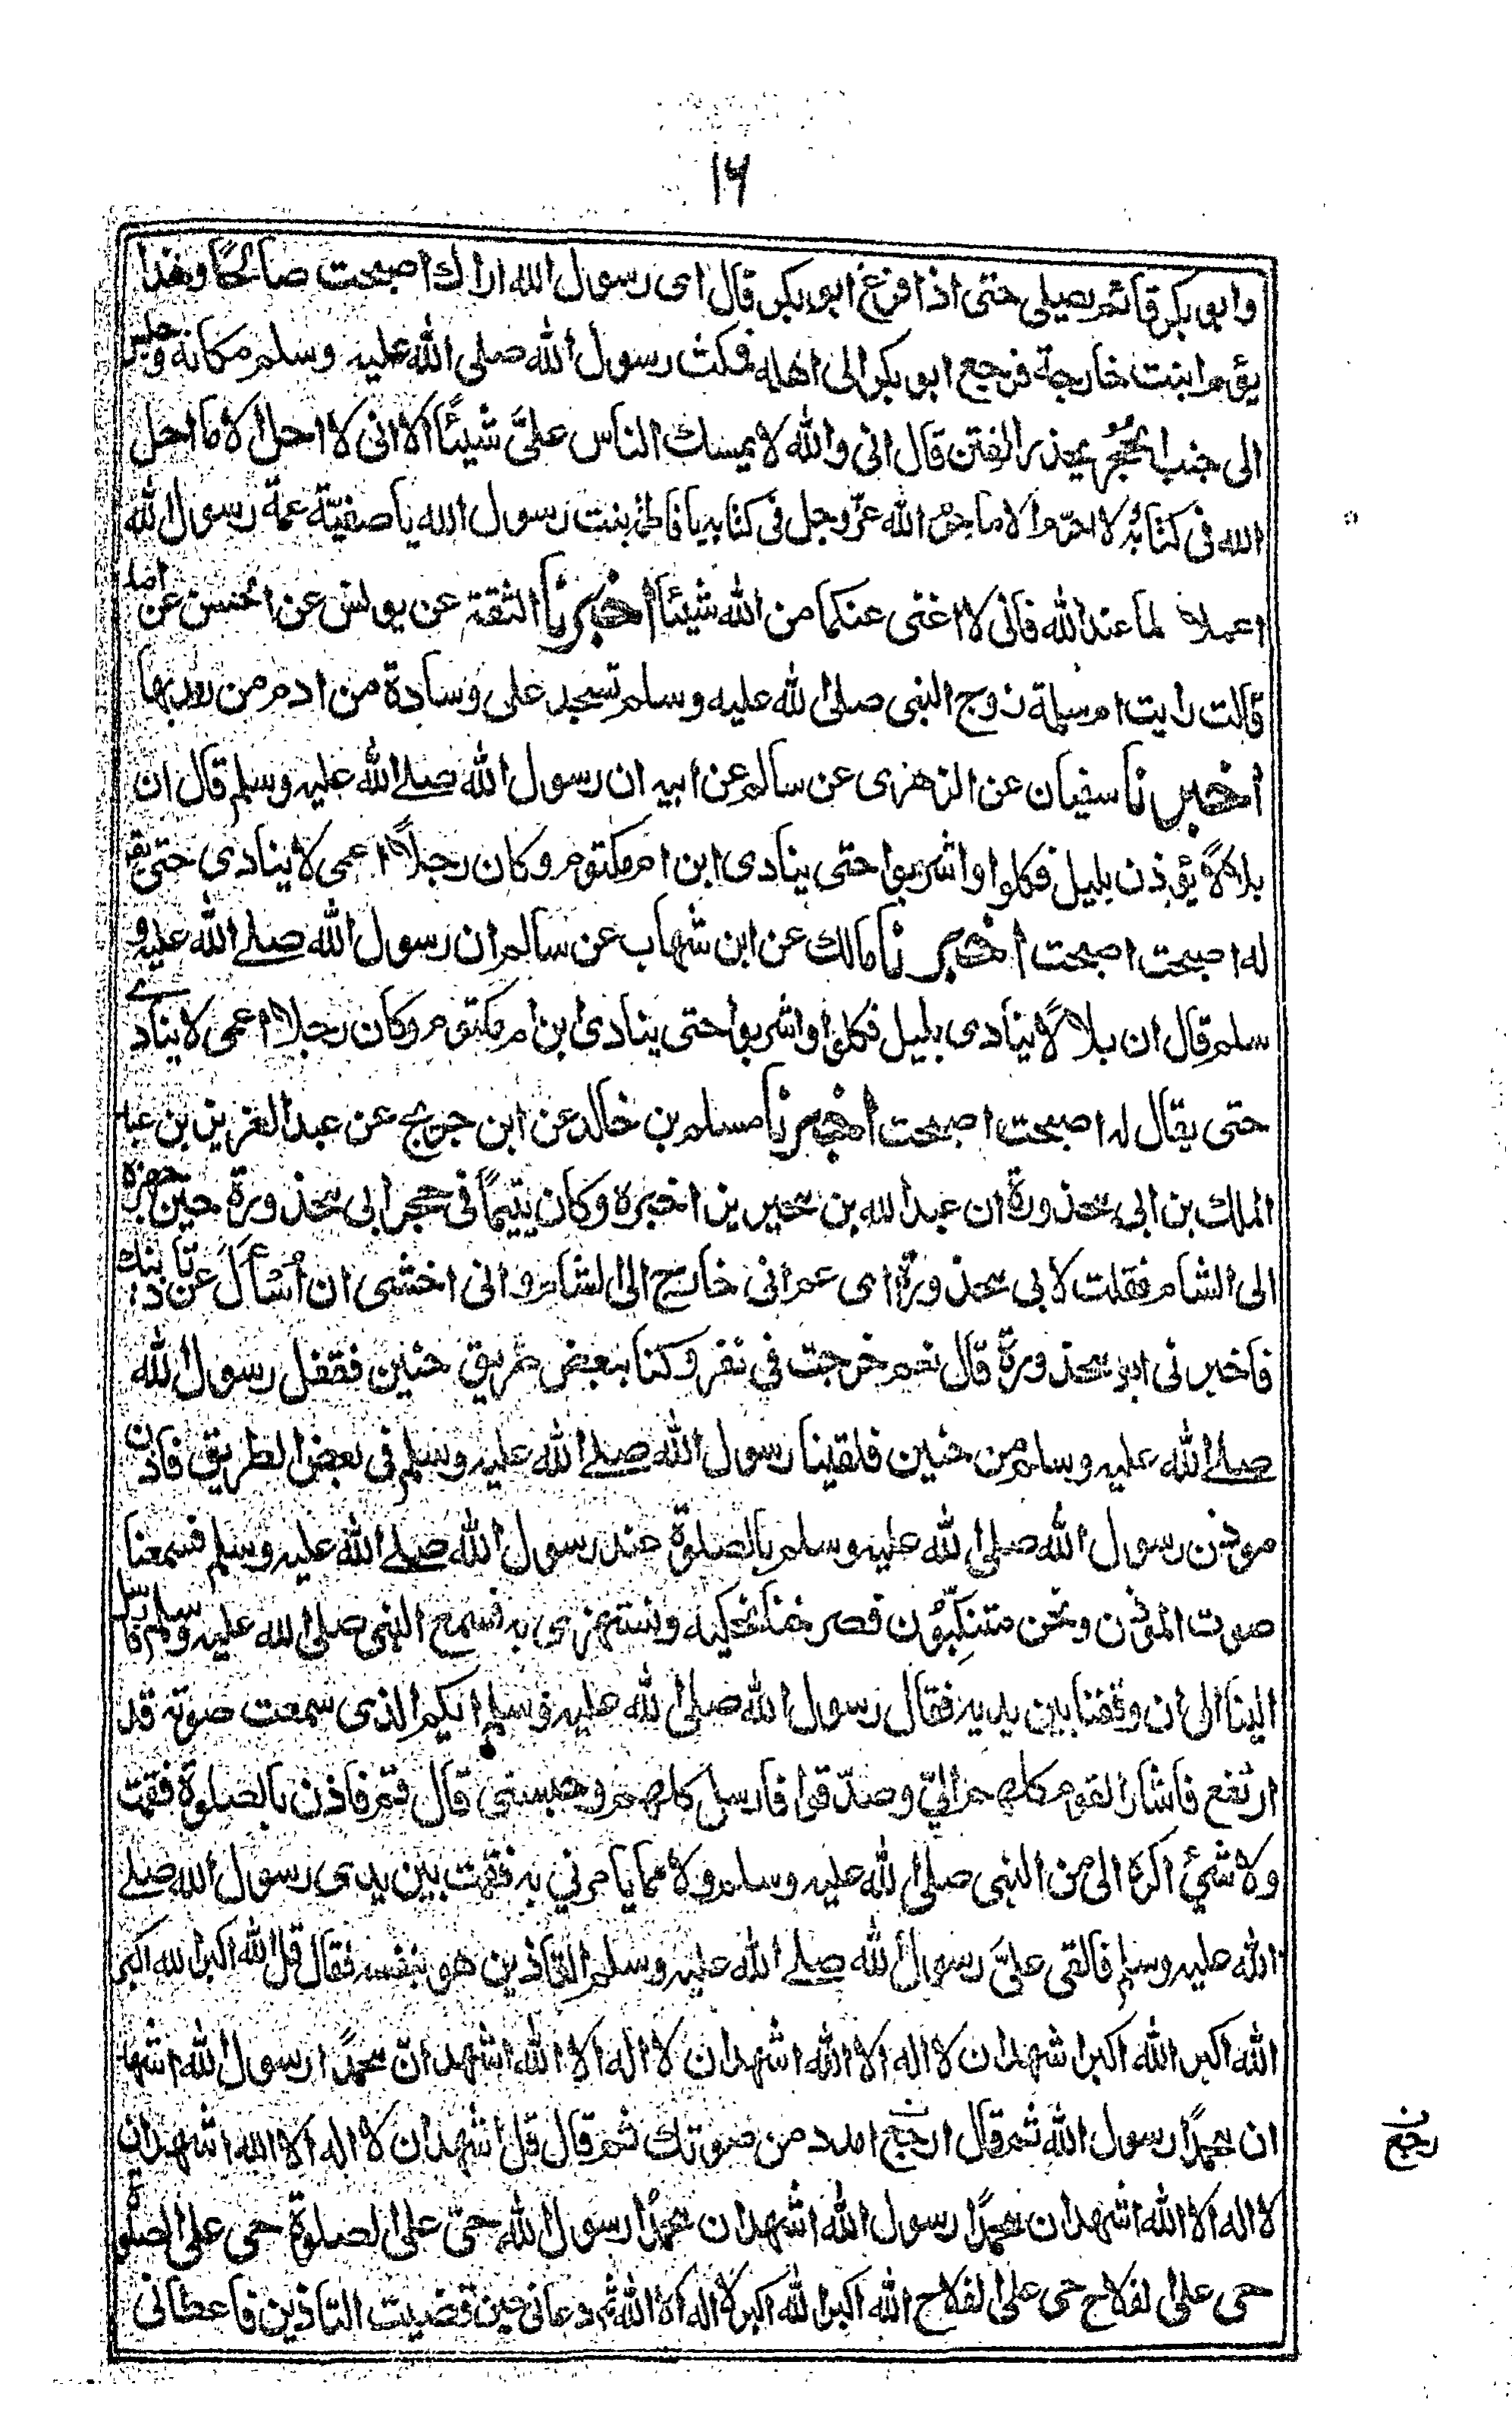 ١٦
وابو بكر قائم يصلى حتى اذا فرغ ابو بكر قال اى رسول الله اراك اصبحت صالحًا وهذا
يؤم ابنت خارجة فرجع ابو بكر الى اهله فمكث رسول الله صلى الله عليه وسلم مكانه وجلس
الى جنب الحُجُر يحذر الفتن قال انى والله لا يمسك الناس علىَّ شيئًا الا انى لا احل الا ما احل
الله فى كتابه ولا احرّم الا ما حرم الله عزّ وجل فى كتابه يا فاطمة بنت رسول الله يا صفيّة عمة رسول الله
اعملا لما عند الله فانى لا اغنى عنكما من الله شيئا اخبرنا الثقة عن يونس عن الحسن عن امه
قالت رايت ام سلمة زوج النبى صلى الله عليه وسلم تسجد على وسادة من ادم من رمد بها
اخبرنا سفيان عن الزهرى عن سالم عن ابيه ان رسول الله صلے الله عليه وسلم قال ان
بلالاً يؤذن بليل فكلوا واشربوا حتى ينادى ابن ام مكتوم وكان رجلاً اعمى لا ينادي حتى يقال
له اصبحت اصبحت اخبرنا مالك عن ابن شهاب عن سالم ان رسول الله صلے الله عليه و
سلم قال ان بلالاً ينادى بليل فكلوا واشربوا حتى ينادى ابن ام مكتوم وكان رجلا اعمى لا ينادے
حتى يقال له اصبحت اصبحت اخبرنا مسلم بن خالد عن ابن جريج عن عبد العزيز بن عبد
الملك بن ابى محذورة ان عبد الله بن محيريز اخبره وكان يتيمًا فى حجر ابى محذورة حين جهزه
الى الشام فقلت لابى محذورة اى عم انى خارج الى الشام وانى اخشى ان أُسْأَلَ عن تاذينك
فاخبرنى ابو محذورة قال نعم خرجت في نفر وكنا ببعض طريق حنين فقفل رسول الله
صلے الله عليه وسلم من حنين فلقينا رسول الله صلے الله عليه وسلم فى بعض الطريق فاذن
موذن رسول الله صلى الله عليه وسلم بالصلوة عند رسول الله صلے الله عليه وسلم فسمعنا
صوت المؤذن ونحن متنكِّبُون فصرخنا نحكيه ونستهزى به فسمع النبى صلى الله عليه وسلم فارسل
الينا الى ان وقفنا بين يديه فقال رسول الله صلى الله عليه وسلم ايكم الذى سمعت صوته قد
ارتفع فاشار القوم كلهم الىّ وصدّقوا فارسل كلهم وحبسنى قال قم فاذن بالصلوة فقمت
ولا شئ اكره الى من النبى صلى الله عليه وسلم ولا مما يامرني به فقمت بين يدى رسول الله صلے
الله عليه وسلم فالقى علىَّ رسول الله صلے الله عليه وسلم التاذين هو بنفسه فقال قل الله اكبر الله اكبر
الله اكبر الله اكبر اشهد ان لا اله الا الله اشهد ان لا اله الا الله اشهد انّ محمدًا رسول الله اشهد
ان محمدًا رسول الله ثم قال ارجع امدد من صوتك ثم قال قل اشهد ان لا اله الا الله اشهد ان
لا اله الا الله اشهد ان محمدًا رسول الله اشهد ان محمدًا رسول الله حىّ على الصلوة حى على الصلوة
حى على الفلاح حى على الفلاح الله اكبر الله اكبر لا اله الا الله ثم دعانى حين قضيت التاذين فاعطانى
رجع